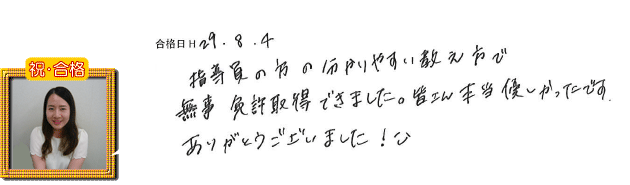 合格日 H 29.8.4
祝・合格
指導員の方の分かりやすい教え方で
無事 免許取得できました。皆さん本当優しかったです.
ありがとうございました!